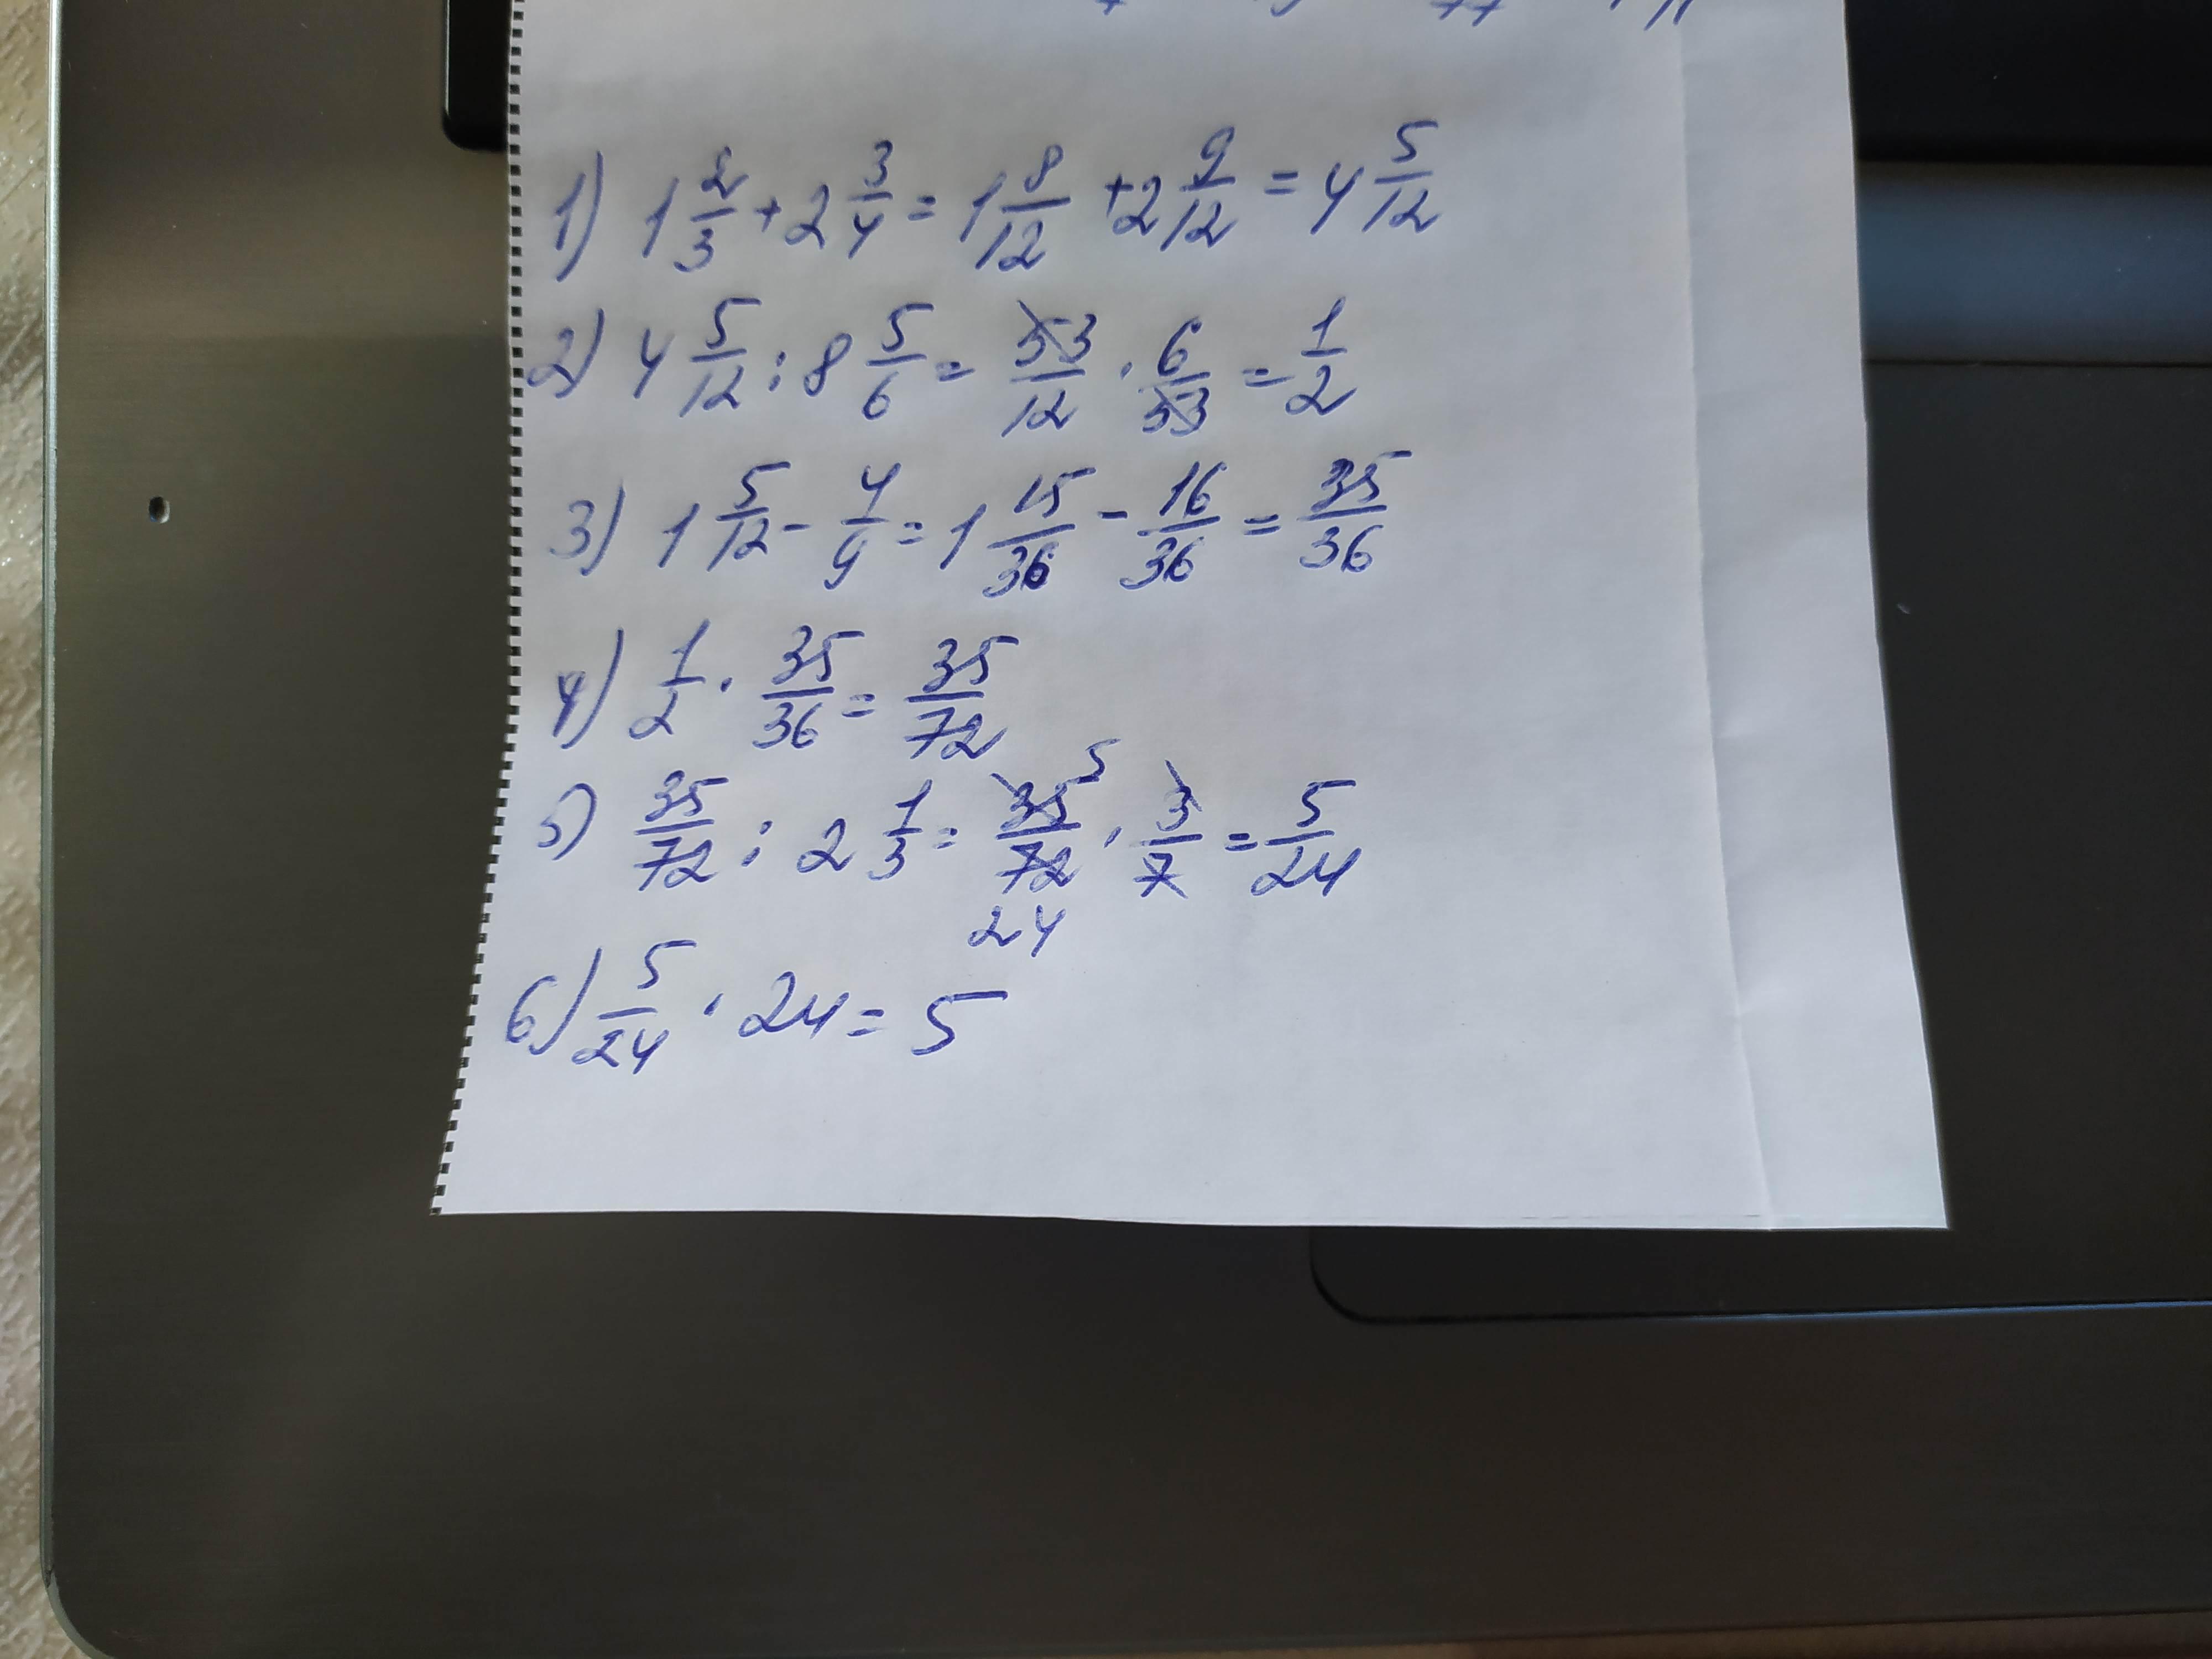 1) 1 2/3 + 2 3/4 = 1 8/12 + 2 9/12 = 4 5/12
2) 4 5/12 : 8 5/6 = 53/12 · 6/53 = 1/2
3) 1 5/12 - 4/9 = 1 15/36 - 16/36 = 35/36
4) 1/2 · 35/36 = 35/72
5) 35/72 : 2 1/3 = 35/72 · 3/7 = 5/24
5
24
6) 5/24 · 24 = 5